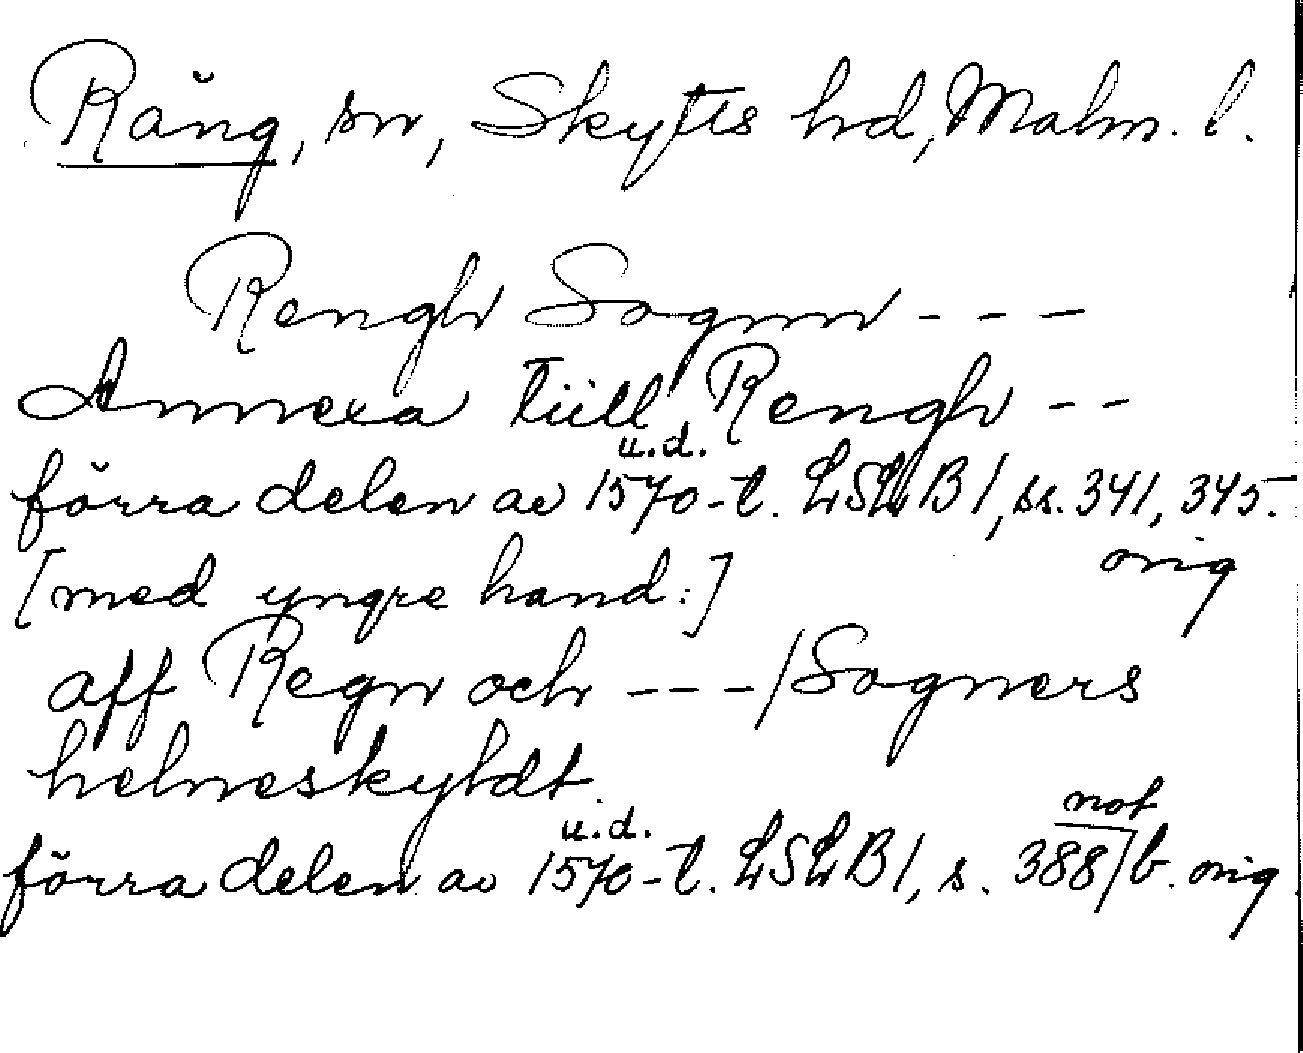 Räng, sn, Skytts hd, Malm. l.
Rengh Sognn - - -
Annexa tiill Rengh - -
u.d.
förra delen av 1570-t. LSLB 1, ss. 341, 345.
orig
[med yngre hand:]
aff Regn och - - - / Sogners
helneskyldt
u.d. not
förra delen av 1570-t. LSLB 1, s. 388/b. orig